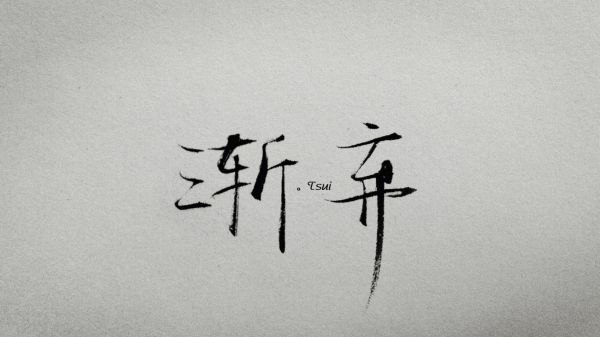 渐。Tsui弃